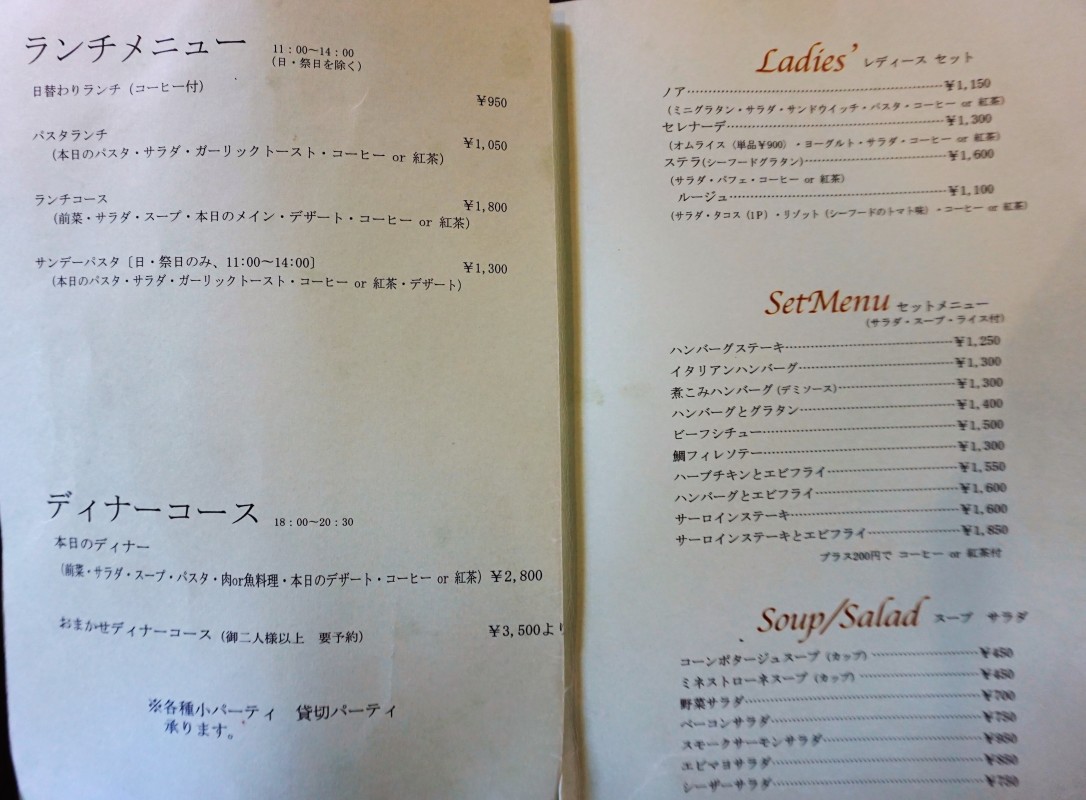 ランチメニュー 11:00～14:00
(日・祭日を除く)
日替わりランチ (コーヒー付)
¥950
パスタランチ
¥1,050
(本日のパスタ・サラダ・ガーリックトースト・コーヒー or 紅茶)
ランチコース
¥1,800
(前菜・サラダ・スープ・本日のメイン・デザート・コーヒー or 紅茶)
サンデーパスタ〔日・祭日のみ、11:00～14:00〕
¥1,300
(本日のパスタ・サラダ・ガーリックトースト・コーヒー or 紅茶・デザート)
ディナーコース 18:00～20:30
本日のディナー
(前菜・サラダ・スープ・パスタ・肉or魚料理・本日のデザート・コーヒー or 紅茶) ¥2,800
おまかせディナーコース (御二人様以上 要予約) ¥3,500より
※各種小パーティ 貸切パーティ
承ります。
Ladies' レディース セット
ノア……………¥1,150
(ミニグラタン・サラダ・サンドウイッチ・パスタ・コーヒー or 紅茶)
セレナーデ……………¥1,300
(オムライス (単品¥900)・ヨーグルト・サラダ・コーヒー or 紅茶)
ステラ(シーフードグラタン)……………¥1,600
(サラダ・パフェ・コーヒー or 紅茶)
ルージュ……………¥1,100
(サラダ・タコス (1P)・リゾット (シーフードのトマト味)・コーヒー or 紅茶)
SetMenu セットメニュー
(サラダ・スープ・ライス付)
ハンバーグステーキ……………¥1,250
イタリアンハンバーグ……………¥1,300
煮こみハンバーグ (デミソース)……………¥1,300
ハンバーグとグラタン……………¥1,400
ビーフシチュー……………¥1,500
鯛フィレソテー……………¥1,300
ハーブチキンとエビフライ……………¥1,550
ハンバーグとエビフライ……………¥1,600
サーロインステーキ……………¥1,600
サーロインステーキとエビフライ……………¥1,850
プラス200円で コーヒー or 紅茶付
Soup/Salad スープ サラダ
コーンポタージュスープ (カップ)……………¥450
ミネストローネスープ (カップ)……………¥450
野菜サラダ……………¥700
ベーコンサラダ……………¥750
スモークサーモンサラダ……………
エビマヨサラダ……………
シーザーサラダ……………¥750